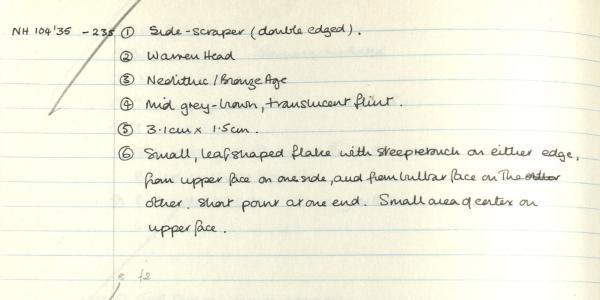 NH 104'35 - 235 ① Side-scraper (double edged).
② Warren Head
③ Neolithic / Bronze Age
④ Mid grey-brown, translucent flint.
⑤ 3.1cm x 1.5cm.
⑥ Small, leaf shaped flake with steep retouch on either edge,
from upper face on one side, and from bulbar face on the other
other. Short point at one end. Small area of cortex on
upper face.